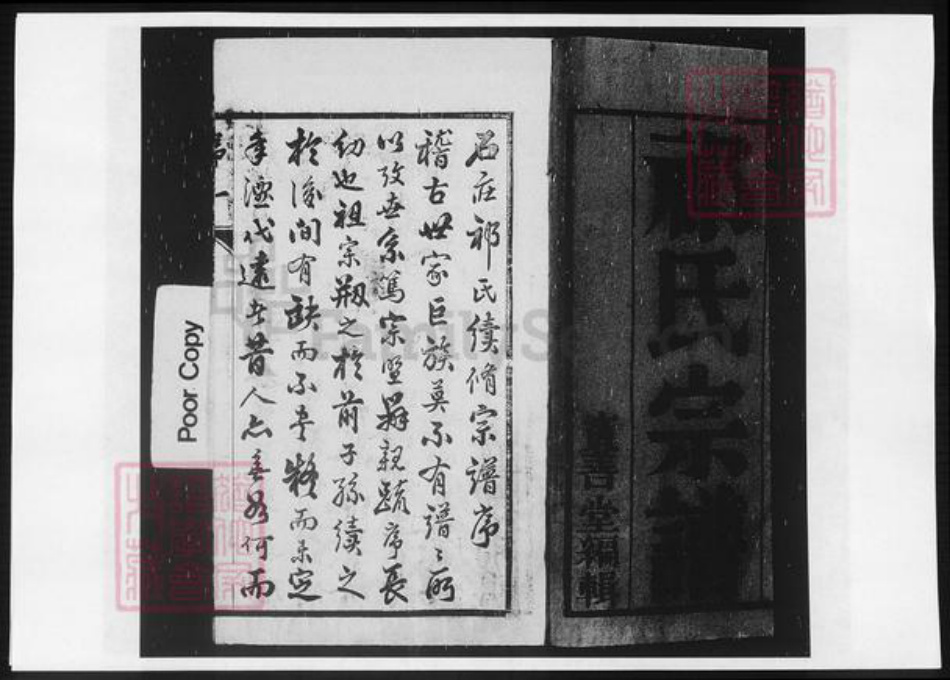 祁氏宗譜
善堂編輯
石庄祁氏續脩宗譜序
稽古世家巨族莫不有譜譜所
以攷世系篤宗盟辨親疏序長
幼也祖宗剏之於前子孫續之
於後間有缺而不書疑而未定
年湮代遠昔人亦無如何而
卷一
Poor Copy
FamilySearch